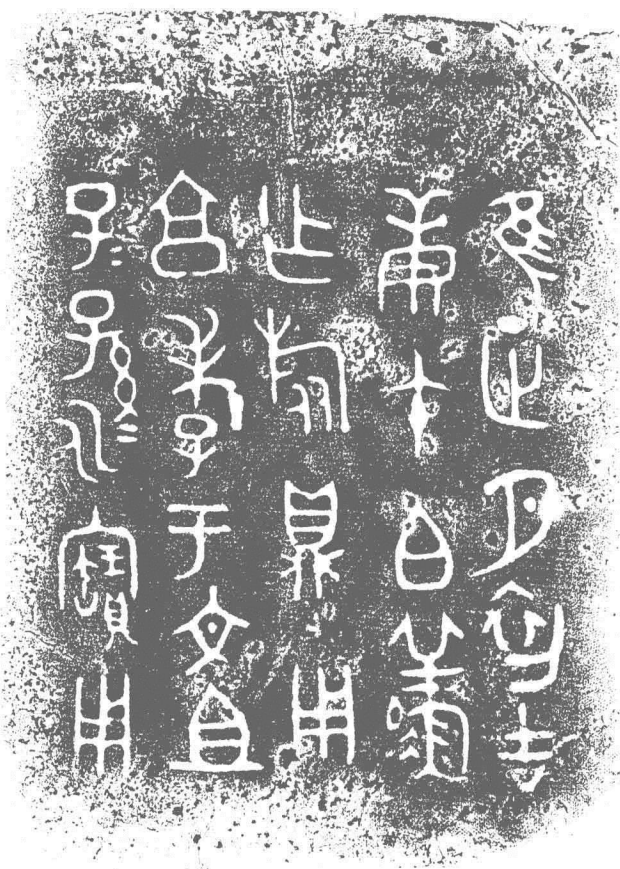 隹正月初吉
庚午白鮮
乍旅鼎用
亯孝于文且
子=孫=永寶用